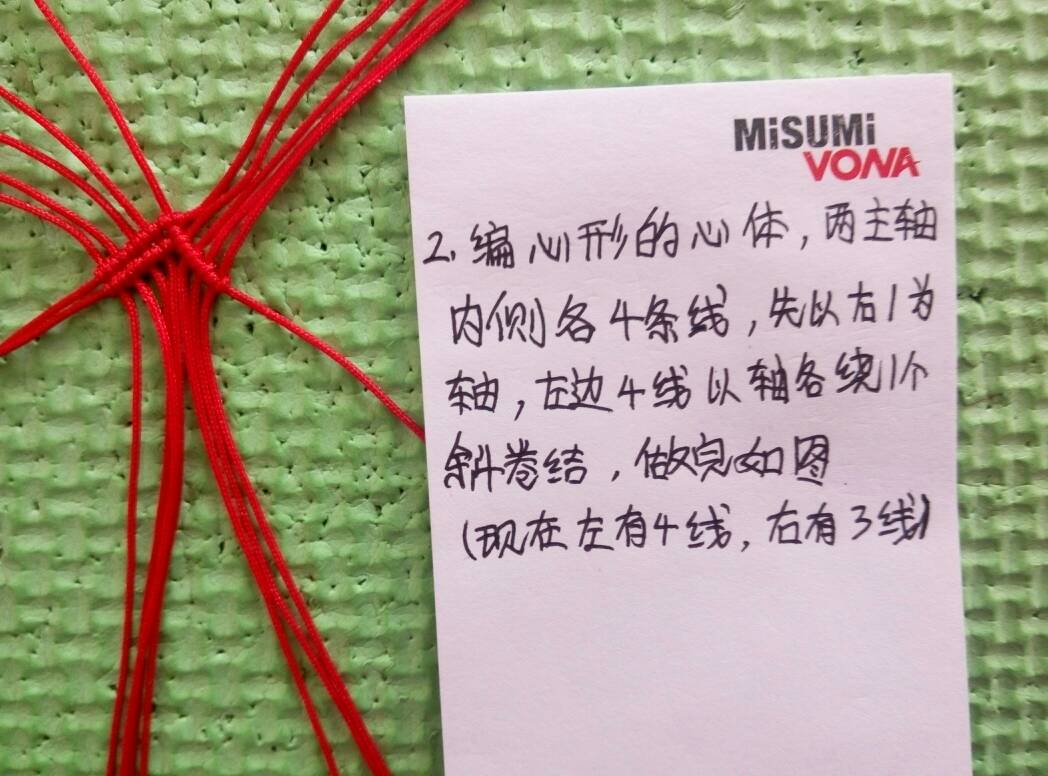 MiSUMi
VONA
2. 编心形的心体，两主轴
内侧各4条线，先以右1为
轴，左边4线以轴各绕1个
斜卷结，做完如图
(现在左有4线，右有3线)